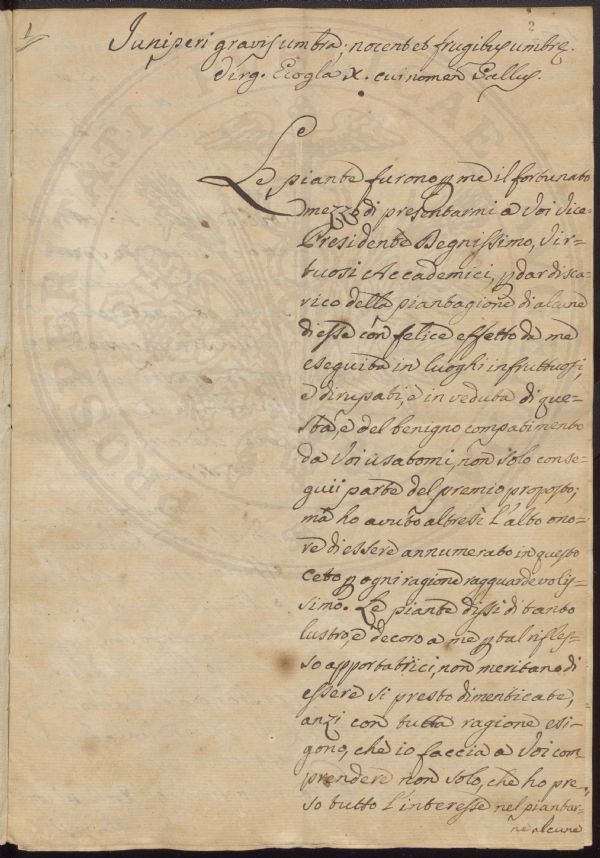 1
2
Juniperi gravis umbra; nocent et frugibus umbrę.
Virg. Ecogla X. cui nomen Gallus.
Le
Le piante furono p me il fortunato
mezzo di presentarmi a Voi Vice-
Presidente Degnissimo, Vir-
tuosi Accademici, p dar disca-
rico delle piantagione di alcune
di esse con felice effetto da me
eseguita in luoghi infruttuosi,
e dirupati, e in veduta di que-
sta, e del benigno compatimento
da Voi usatomi, non solo conse-
guii parte del premio proposto;
mà ho avuto altresì l'alto ono-
re di essere annumerato in questo
Ceto p ogni ragione ragguardevolis-
simo. Le piante dissi di tanto
lustro, e decoro a me p tal rifles-
so apportatrici, non meritano di
essere si presto dimenticate,
anzi con tutta ragione esi-
gono, che io faccia a Voi com-
prendere non solo, che ho pre-
so tutto l'interesse nel piantar-
ne alcune
PROSPERITATI PUBLICAE